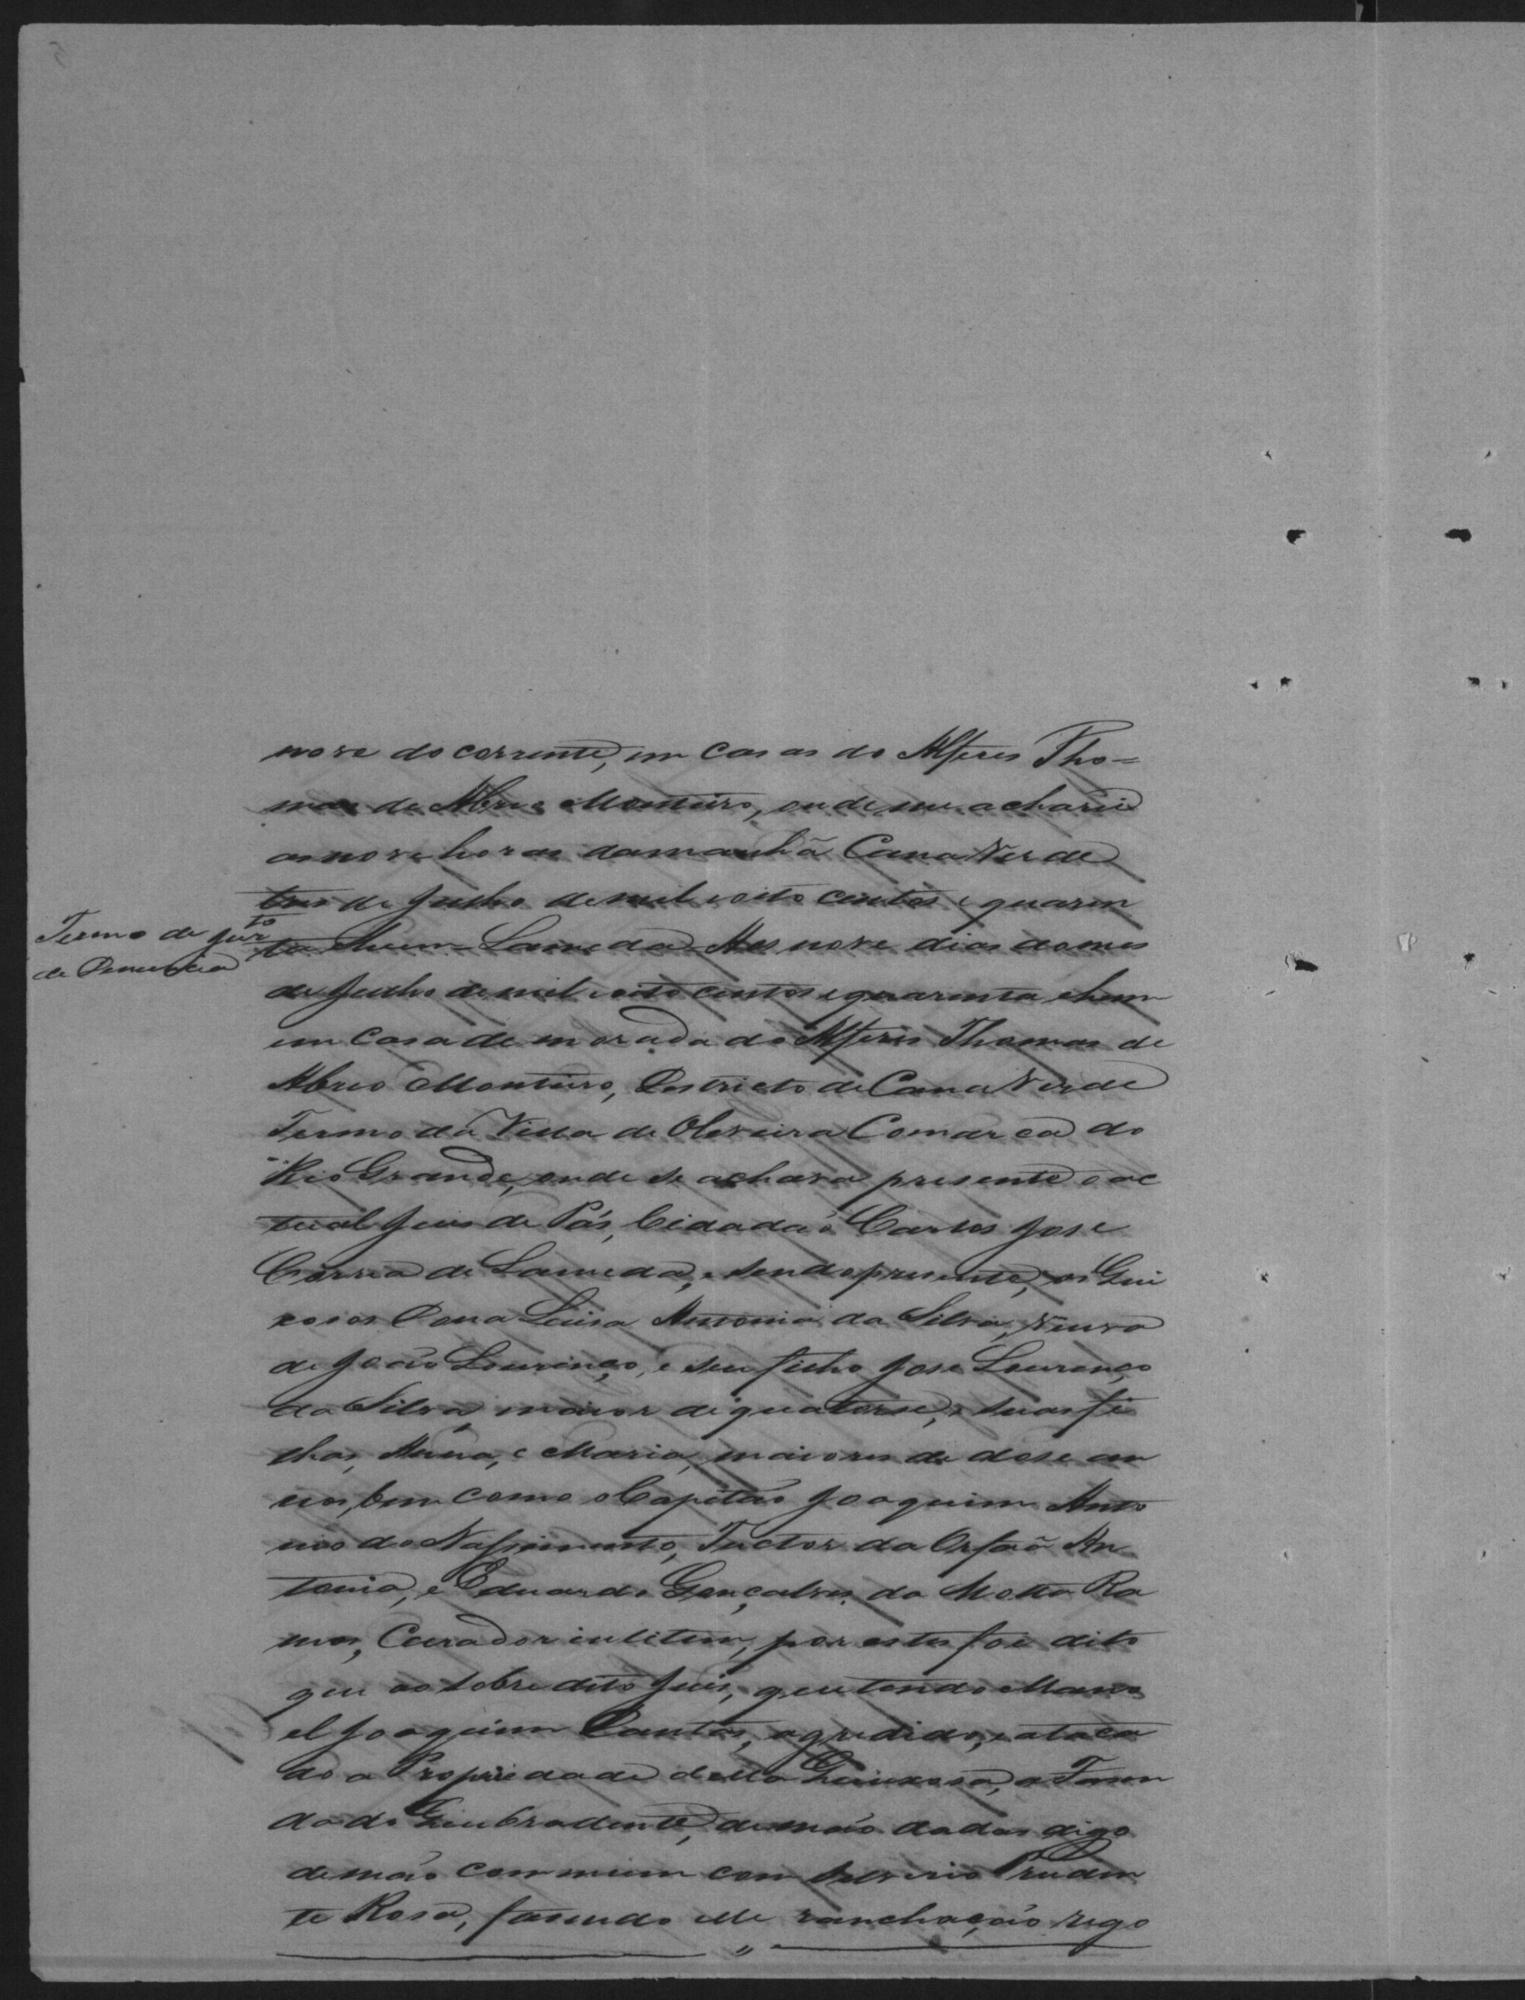 nove do corrente, em casas do Alferes Tho=
mas de Abreo Monteiro, onde me acharei
as nove horas damanhã Cana Verde
tres de Julho de mil e oito centos e quaren
Termo de jur.to
de Denuncia
ta e hum Lameda Aos nove dias do mes
de Julho de mil e oito centos e quarenta e hum
em casa de morada do Alferes Thomas de
Abreo Monteiro, Destricto de Cana Verde
Termo da Villa de Oliveira Comarca do
Rio Grande, onde se achava presente o ac
tual Juis de Pás, Cidadaõ Carlos Jose
Correa de Lameda, e sendo presente, os Quei
xosos Dona Luisa Antonia da Silva, Viuva
de João Lourenço, e seu filho Jose Lourenço
da Silva, maior de quatorse, e suas fi
lhas, Anna, e Maria, maiores de dose an
nos, bem como o Capitão Joaquim Anto
nio do Nascimento, Tuctor da Orfaã An
tonia, e Eduardo Gonçalves da Motta Ra
mos, Curador inlitem, por estes foi dito
que ao sobredito Juis, que tendo Mano
el Joaquim Dantas, agredido, e ataca
do a Propriedade della Queixosa, a Fasen
da do Quebradente, de mão dadas digo
de mão commum com Silverio Pruden
te Rosa, fasendo elle ranchação rego